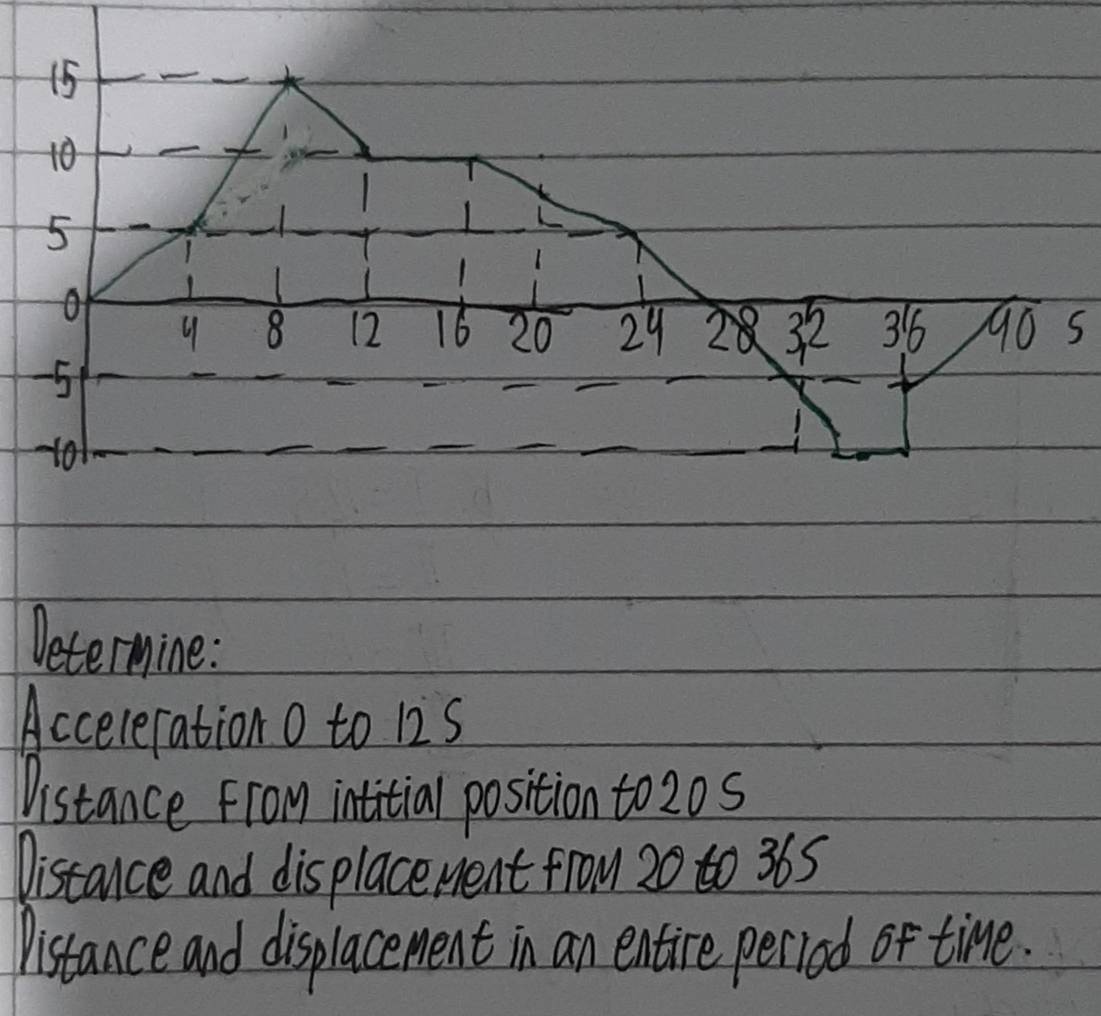 15
10
5
0
4 8 12 16 20 24 28 32 36 40 S
-5
-10
Determine:
Acceleration 0 to 12 S
Distance From intitial position to 20 S
Distance and displacement from 20 to 36S
Distance and displacement in an entire period OF time.